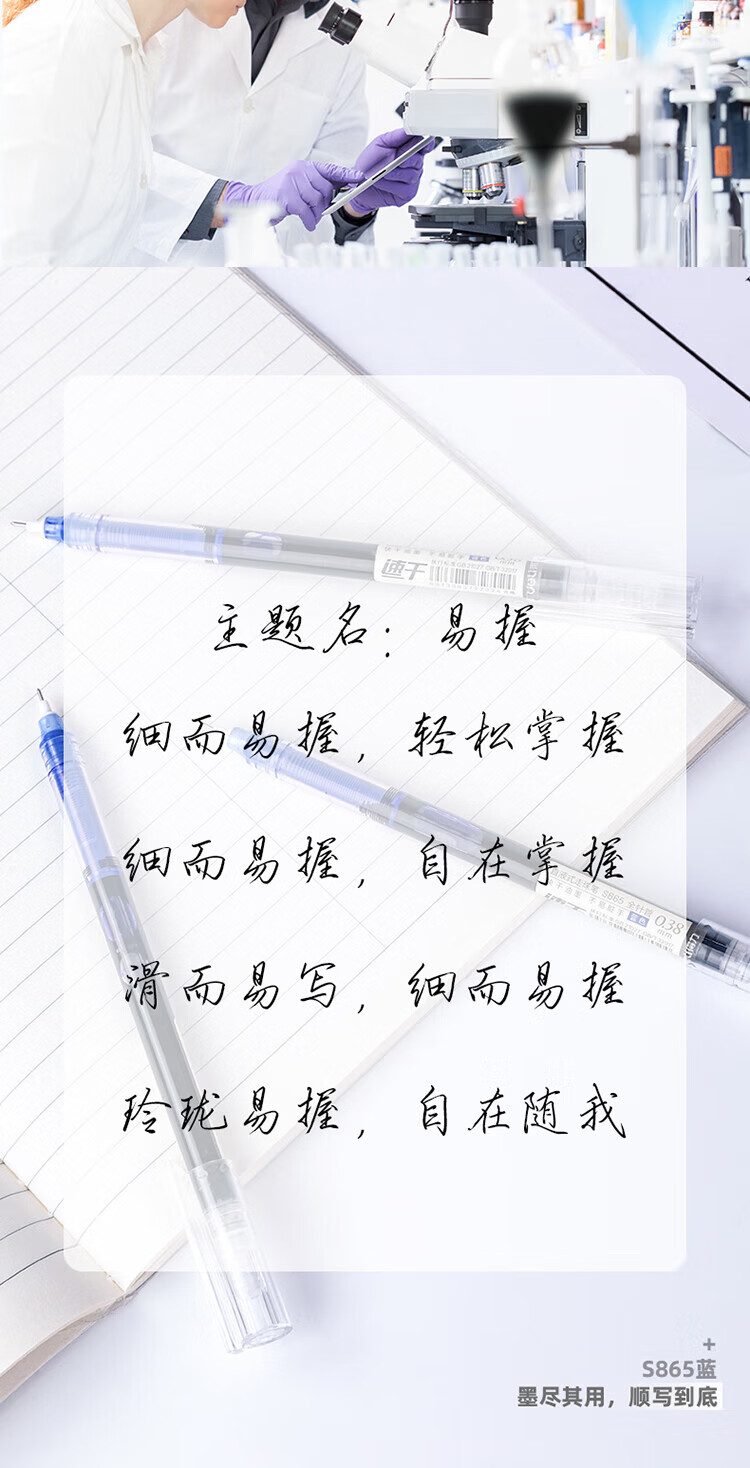 速干
主题名：易握
细而易握，轻松掌握
细而易握，自在掌握
S865 全针管
0.38
mm
滑而易写，细而易握
玲珑易握，自在随我
+
S865蓝
墨尽其用，顺写到底